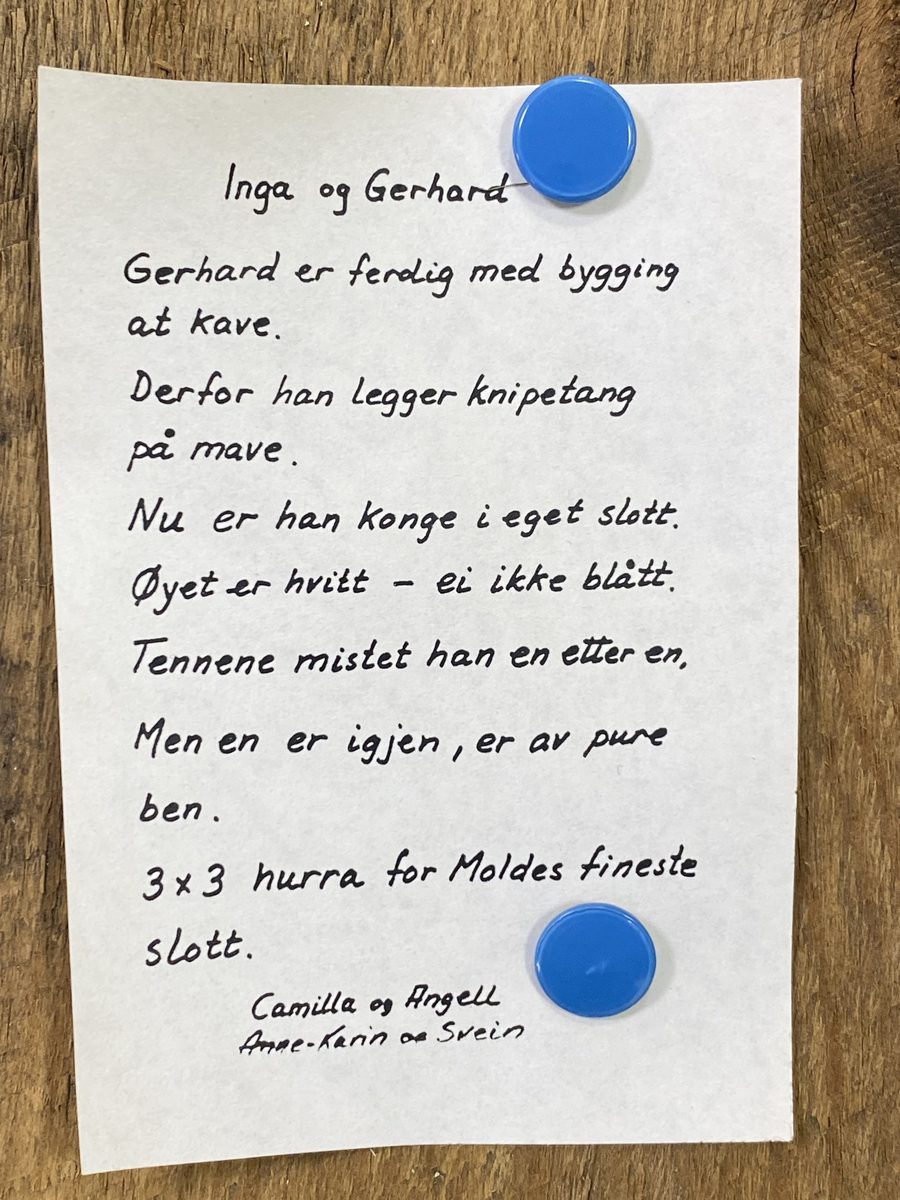 Inga og Gerhard
Gerhard er ferdig med bygging
at kave.
Derfor han legger knipetang
på mave.
Nu er han konge i eget slott.
Øyet er hvitt - ei ikke blått.
Tennene mistet han en etter en,
Men en er igjen, er av pure
ben.
3 x 3 hurra for Moldes fineste
slott.
Camilla og Angell
Anne-Karin og Svein